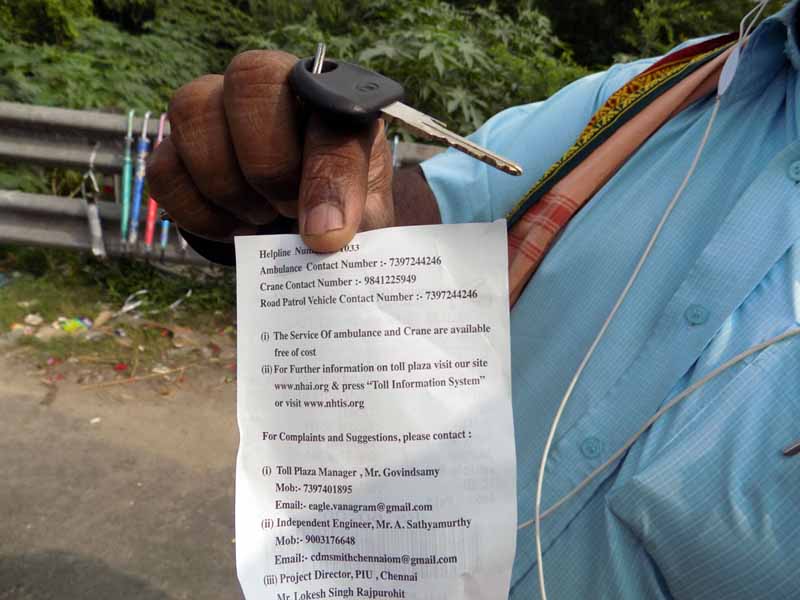 Helpline 1033
Ambulance Contact Number :- 7397244246
Crane Contact Number :- 9841225949
Road Patrol Vehicle Contact Number :- 7397244246
(i) The Service Of ambulance and Crane are available
free of cost
(ii) For Further information on toll plaza visit our site
www.nhai.org & press “Toll Information System”
or visit www.nhtis.org
For Complaints and Suggestions, please contact :
(i) Toll Plaza Manager , Mr. Govindsamy
Mob:- 7397401895
Email:- eagle.vanagram@gmail.com
(ii) Independent Engineer, Mr. A. Sathyamurthy
Mob:- 9003176648
Email:- cdmsmithchennaiom@gmail.com
(iii) Project Director, PIU , Chennai
Mr. Lokesh Singh Rajpurohit